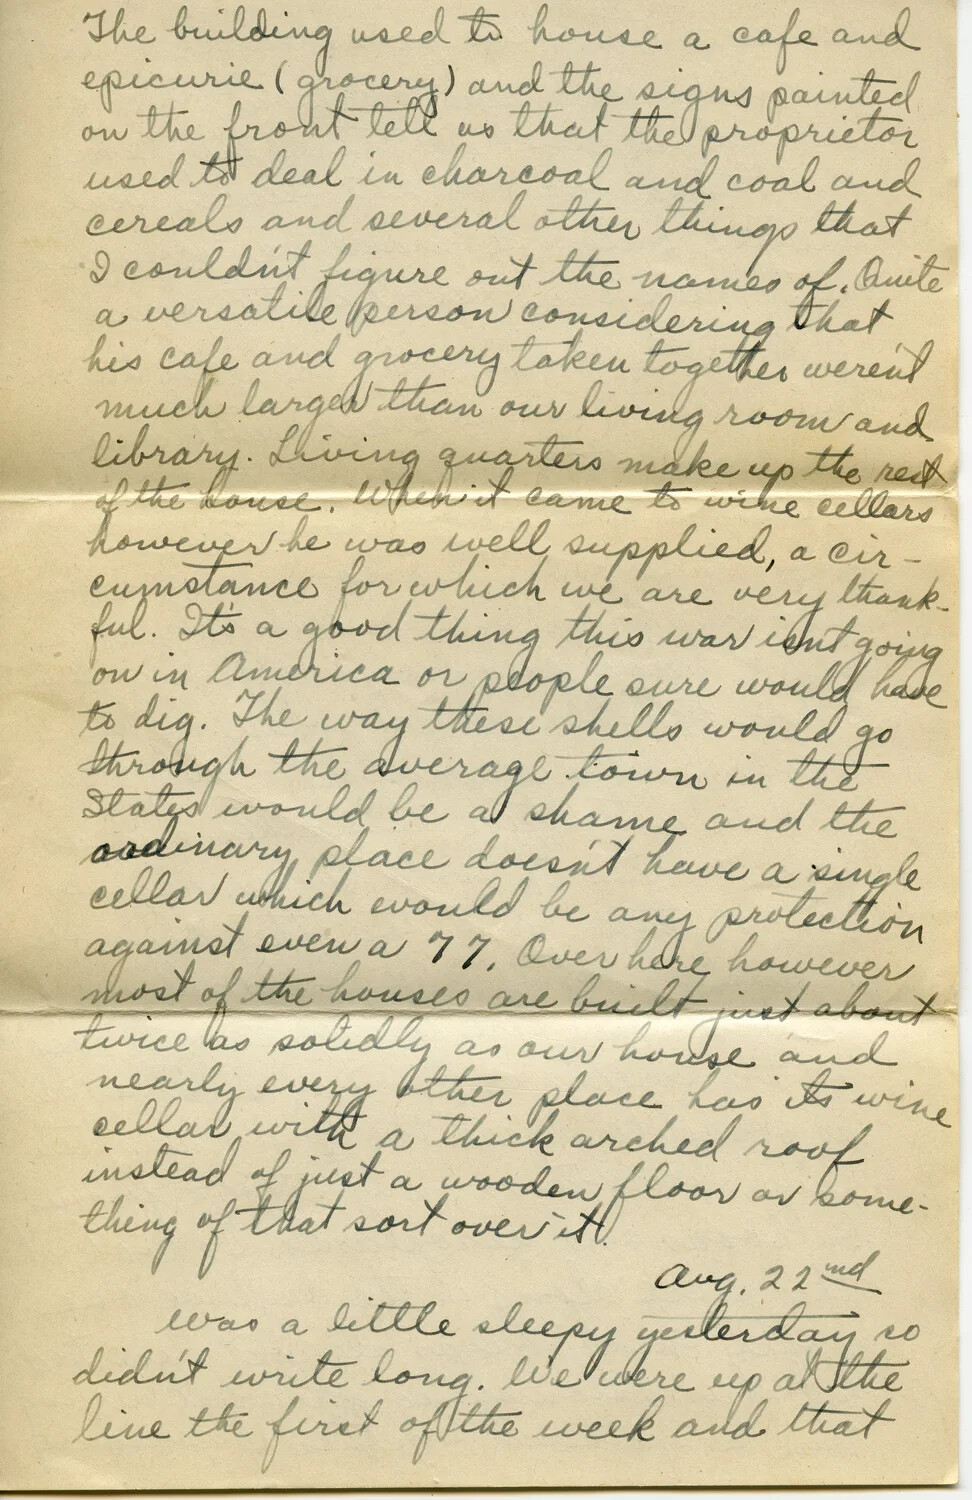 The building used to house a cafe and
epicurie (grocery) and the signs painted
on the front tell us that the proprietor
used to deal in charcoal and coal and
cereals and several other things that
I couldn't figure out the names of. Quite
a versatile person considering that
his cafe and grocery taken together weren't
much larger than our living room and
library. Living quarters make up the rest
of the house. When it came to wine cellars
however he was well supplied, a cir-
cumstance for which we are very thank-
ful. It's a good thing this war isn't going
on in America or people sure would have
to dig. The way these shells would go
through the average town in the
States would be a shame and the
ordinary place doesn't have a single
cellar which would be any protection
against even a 77. Over here however
most of the houses are built just about
twice as solidly as our house and
nearly every other place has its wine
cellar with a thick arched roof
instead of just a wooden floor or some-
thing of that sort over it.
Aug. 22nd
Was a little sleepy yesterday so
didn't write long. We were up at the
line the first of the week and that